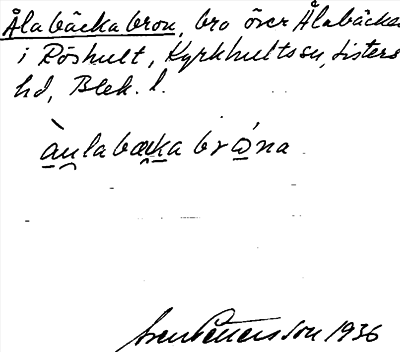 Ålabäckabron, bro över Ålabäcken
i Röshult, Kyrkhults sn, Listers
hd, Blek. l.
àu̯labæka brǿna
Sven Pettersson 1936